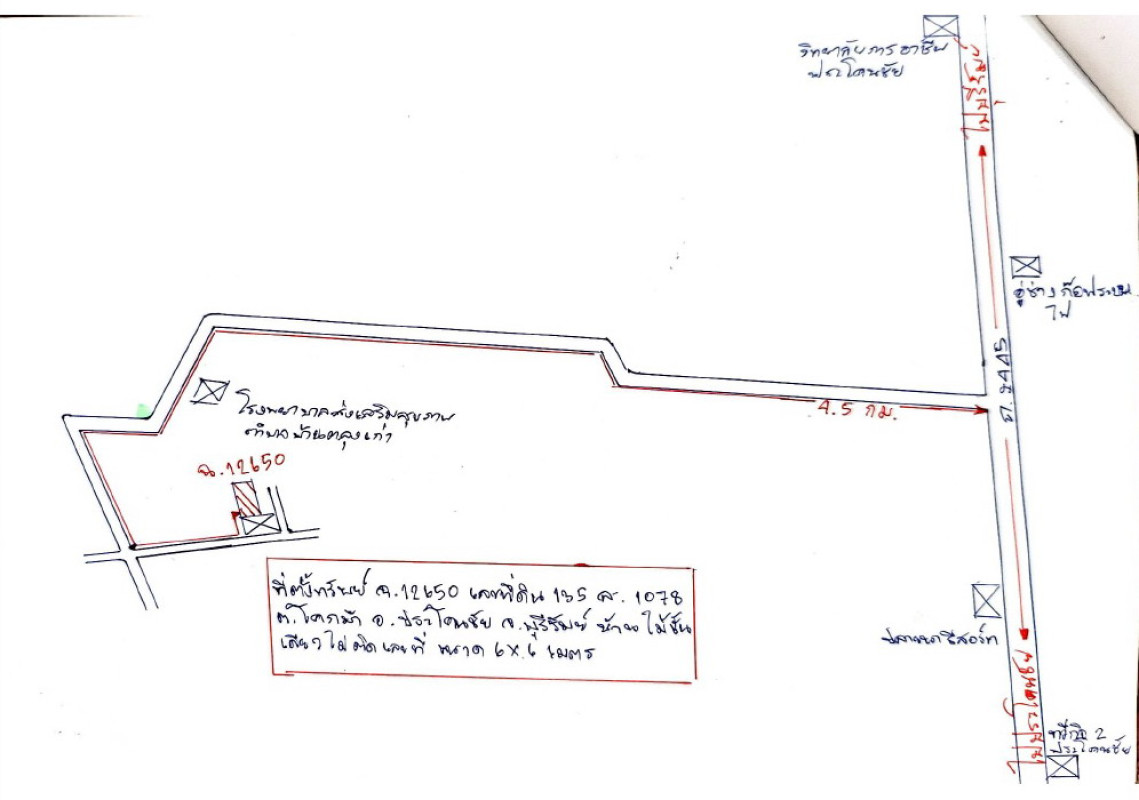 วิทยาลัยการอาชีพ
ประโคนชัย
ไปบุรีรัมย์
อู่ช่าง
ไฟ
ถ.2445
4.5 กม.
โรงพยาบาลส่งเสริมสุขภาพ
ตำบลบ้านตลุงเก่า
ฉ.12650
ที่ตั้งทรัพย์ ฉ.12650 เลขที่ดิน 135 ส. 1078
ต.โคกม้า อ.ประโคนชัย จ.บุรีรัมย์ บ้านไม้ชั้น
เดียวไม่ติดเลขที่ ขนาด 6x6 เมตร
รีสอร์ท
ไปประโคนชัย
ทวีกิจ 2
ประโคนชัย